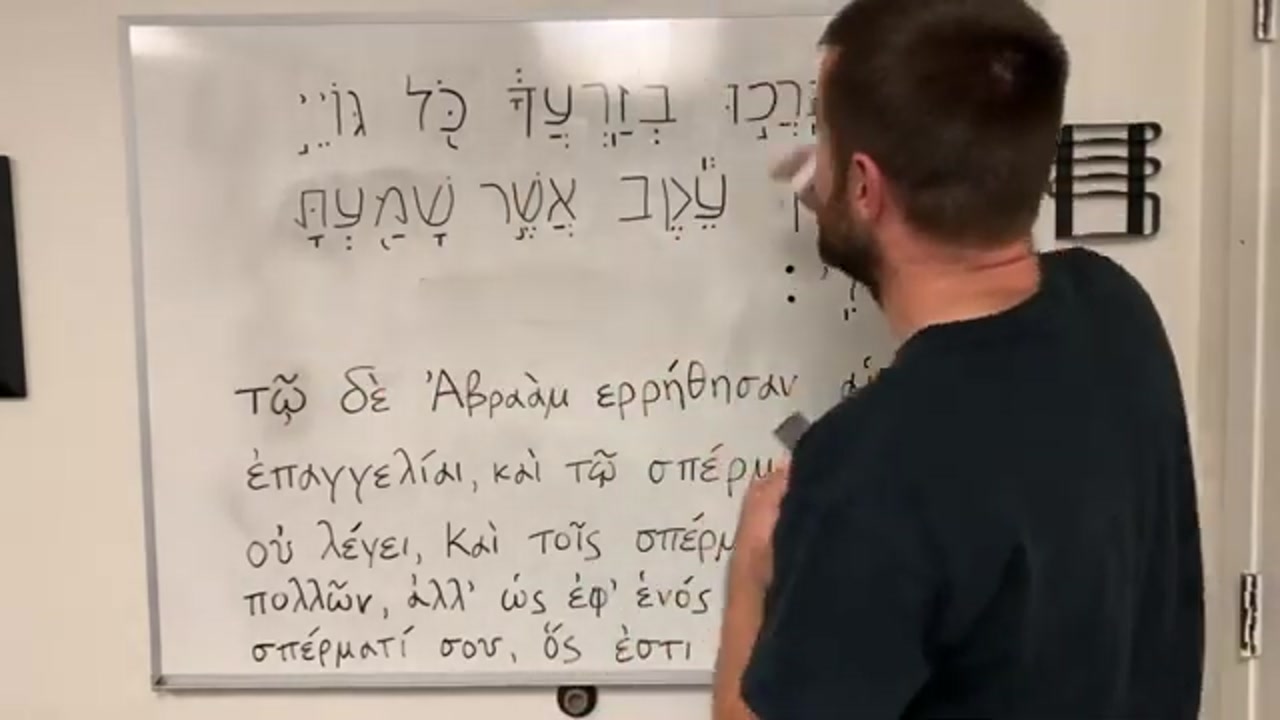 בְזַרְעֲךָ כֹּל גּוֹיֵי
עֵקֶב אֲשֶׁר שָׁמַעְתָּ
τῷ δὲ Ἀβραὰμ ερρήθησαν
ἐπαγγελίαι, καὶ τῷ
οὐ λέγει, Καὶ τοῖς
πολλῶν, ἀλλ' ὡς ἐφ' ἑνός
σπέρματί σου, ὅς ἐστι